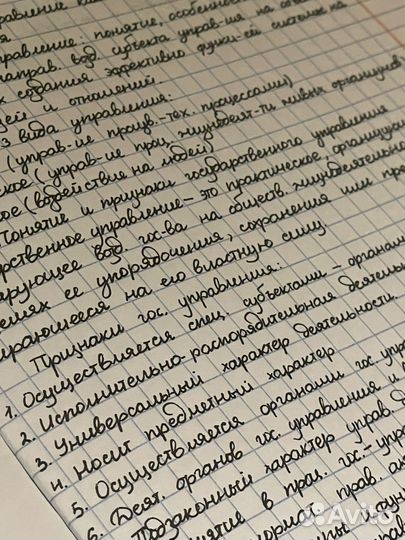 управление: понятие, особенност
направ. возд. субъекта управ-ия на
создания эффективно функ-ей системы
и отношений.
3 вида управления:
(управ-ие произв.-тех. процессами)
ское (управ-ие проц. жизнедеят-ти живых организмов)
ное (воздействие на людей)
Понятие и признаки государственного управления
рственное управление - это практическое, организующ
ирующее возд. гос-ва на обществ. жизнедеятельно
целях ее упорядочения, сохранения или пре
ирающееся на его властную силу
Признаки гос. управления:
1. Осуществляется спец. субъектами - органам
2. Исполнительно-распорядительная деятель
3. Универсальный характер деятельности.
4. Носит предметный характер
5. Осуществляется органами гос. упр
6. Деят. органов гос. управления
Подзаконный характер управ. д
нятие в прав. гос.-упра
нормой прав. ак
Avito